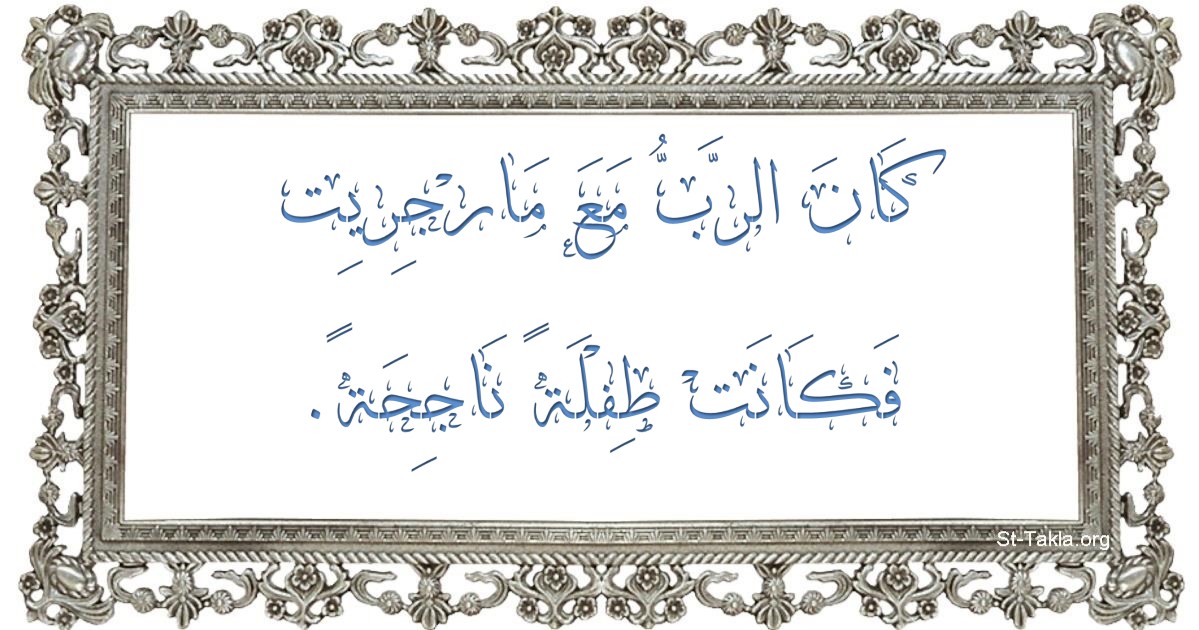 كَانَ الرَّبُّ مَعَ مَارْجِرِيِت
فَكَانَتْ طِفْلَةً نَاجِحَةً.
St-Takla.org